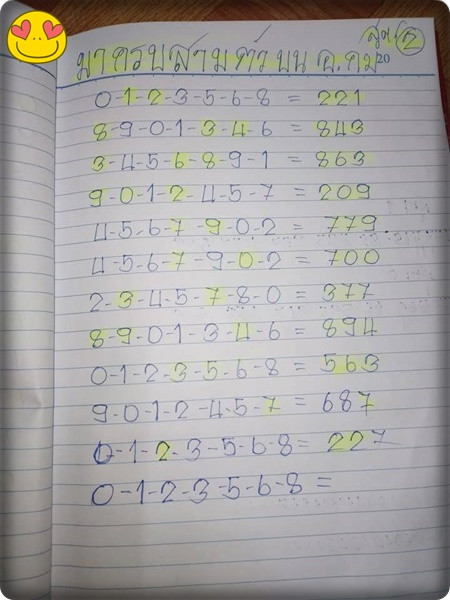 สูตร 2
มาครบสามตัวบน อ.คม 20
0-1-2-3-5-6-8 = 221
8-9-0-1-3-4-6 = 843
3-4-5-6-8-9-1 = 863
9-0-1-2-4-5-7 = 209
4-5-6-7-9-0-2 = 779
4-5-6-7-9-0-2 = 700
2-3-4-5-7-8-0 = 377
8-9-0-1-3-4-6 = 894
0-1-2-3-5-6-8 = 563
9-0-1-2-4-5-7 = 687
0-1-2-3-5-6-8 = 227
0-1-2-3-5-6-8 =